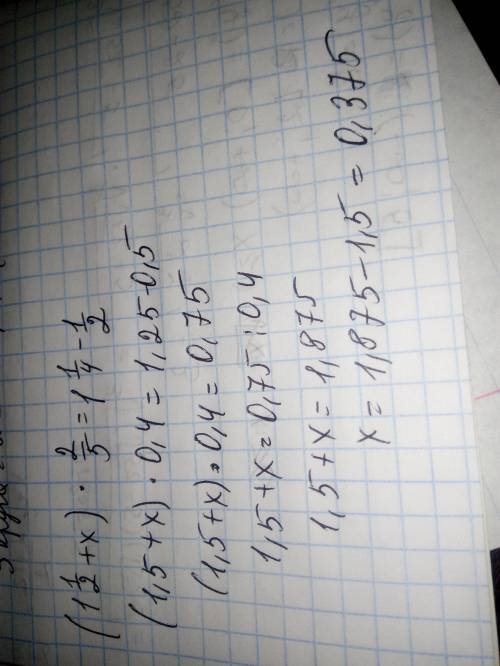 (1 1/2 + x) · 2/5 = 1 1/4 - 1/2
(1,5 + x) · 0,4 = 1,25 - 0,5
(1,5 + x) · 0,4 = 0,75
1,5 + x = 0,75 : 0,4
1,5 + x = 1,875
x = 1,875 - 1,5 = 0,375